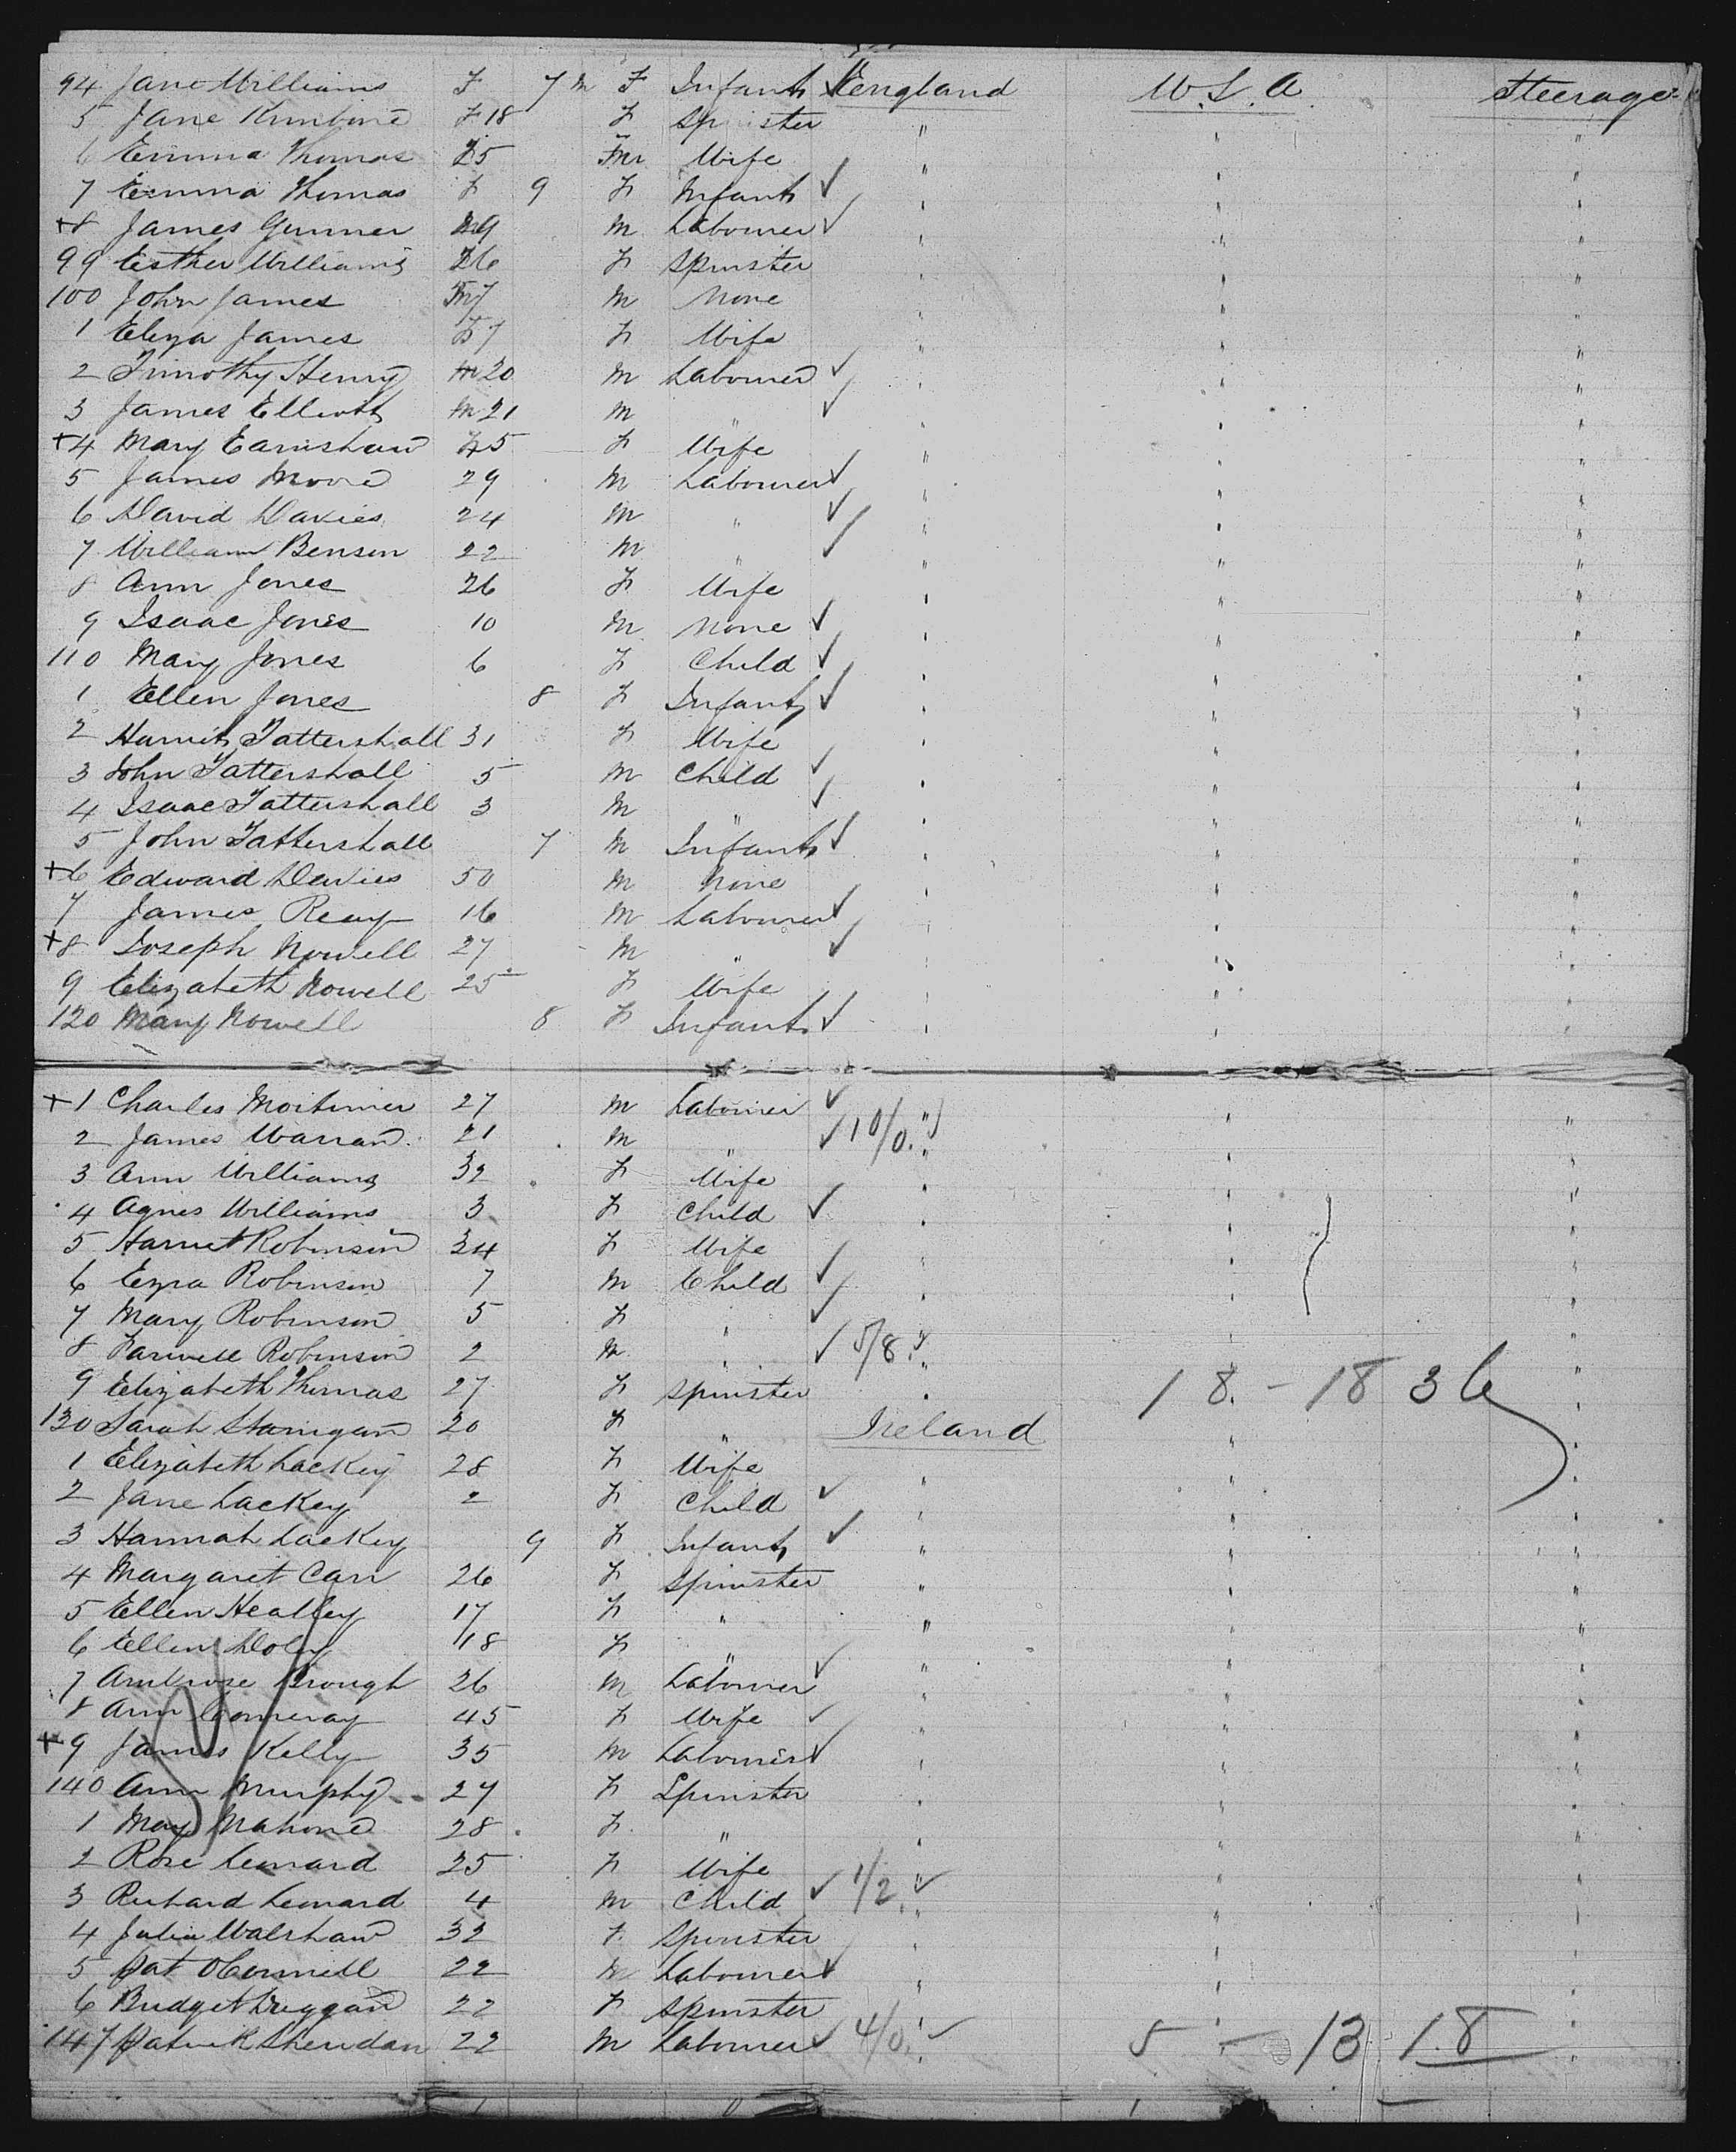 94 Jane Williams F 7m F Infant England U.S.A. Steerage
5 Jane F 18 F Spinster " " "
6 Emma Thomas 25 Wife " " "
7 Emma Thomas F 9 F Infant ✓ " " "
+8 James Gunner F M Labourer ✓ " " "
99 Esther Williams 26 F Spinster " " "
100 John James M None " " "
1 Eliza James 57 F Wife " " "
2 Timothy Henry M 20 M Labourer ✓ " " "
3 James Elliott M 21 M " ✓ " " "
+4 Mary Earnshaw 45 F Wife " " "
5 James Moore 29 M Labourer ✓ " " "
6 David Davies 24 M " ✓ " " "
7 William Benson 22 M " ✓ " " "
8 Ann Jones 26 F Wife " " "
9 Isaac Jones 10 M None ✓ " " "
110 Mary Jones 6 F Child ✓ " " "
1 Ellen Jones 8 F Infant ✓ " " "
2 Tattershall 31 F Wife " " "
3 John Tattershall 5 M Child ✓ " " "
4 Isaac Tattershall 3 M " ✓ " " "
5 John Tattershall 7 M Infant ✓ " " "
+6 Edward Davies 50 M None " " "
7 James Reay 16 M Labourer ✓ " " "
+8 Joseph Nowell 27 M " ✓ " " "
9 Elizabeth Nowell 25 F Wife " " "
120 Mary Nowell 8 F Infant ✓ " " "
+1 Charles Mortimer 27 M Labourer ✓ " " "
2 James 21 M " ✓ 10/0 " " "
3 Ann Williams 32 F Wife " " "
4 Agnes Williams 3 F Child ✓ " " "
5 Harriet Robinson 34 F Wife " " "
6 Ezra Robinson 7 M Child ✓ " " "
7 Mary Robinson 5 F " ✓ " " "
8 Robinson 2 M " ✓ 5/8 " " "
9 Elizabeth Thomas 27 F Spinster " 18 - 18 36 "
130 Sarah 20 F " Ireland " "
1 Elizabeth Lackey 28 F Wife " " "
2 Jane Lackey 2 F Child ✓ " " "
3 Hannah Lackey 9 F Infant ✓ " " "
4 Margaret Carr 26 F Spinster " " "
5 Ellen Heatley 17 F " " " "
6 Ellen 18 F " " " "
7 Ambrose Brough 26 M Labourer ✓ " " "
8 Ann 45 F Wife ✓ " " "
+9 James Kelly 35 M Labourer ✓ " " "
140 Ann Murphy 27 F Spinster " " "
1 May Mahone 28 F " " " "
2 Rose Leonard 25 F Wife " " "
3 Richard Leonard 4 M Child ✓ 1/2 ✓ " " "
4 Julia Walshaw 32 F Spinster " " "
5 Pat OConnell 22 M Labourer ✓ " " "
6 Bridget Duggan 22 F Spinster " " "
147 Patrick Sheridan 22 M Labourer ✓ 4/0 ✓ 5 - 13 18 "